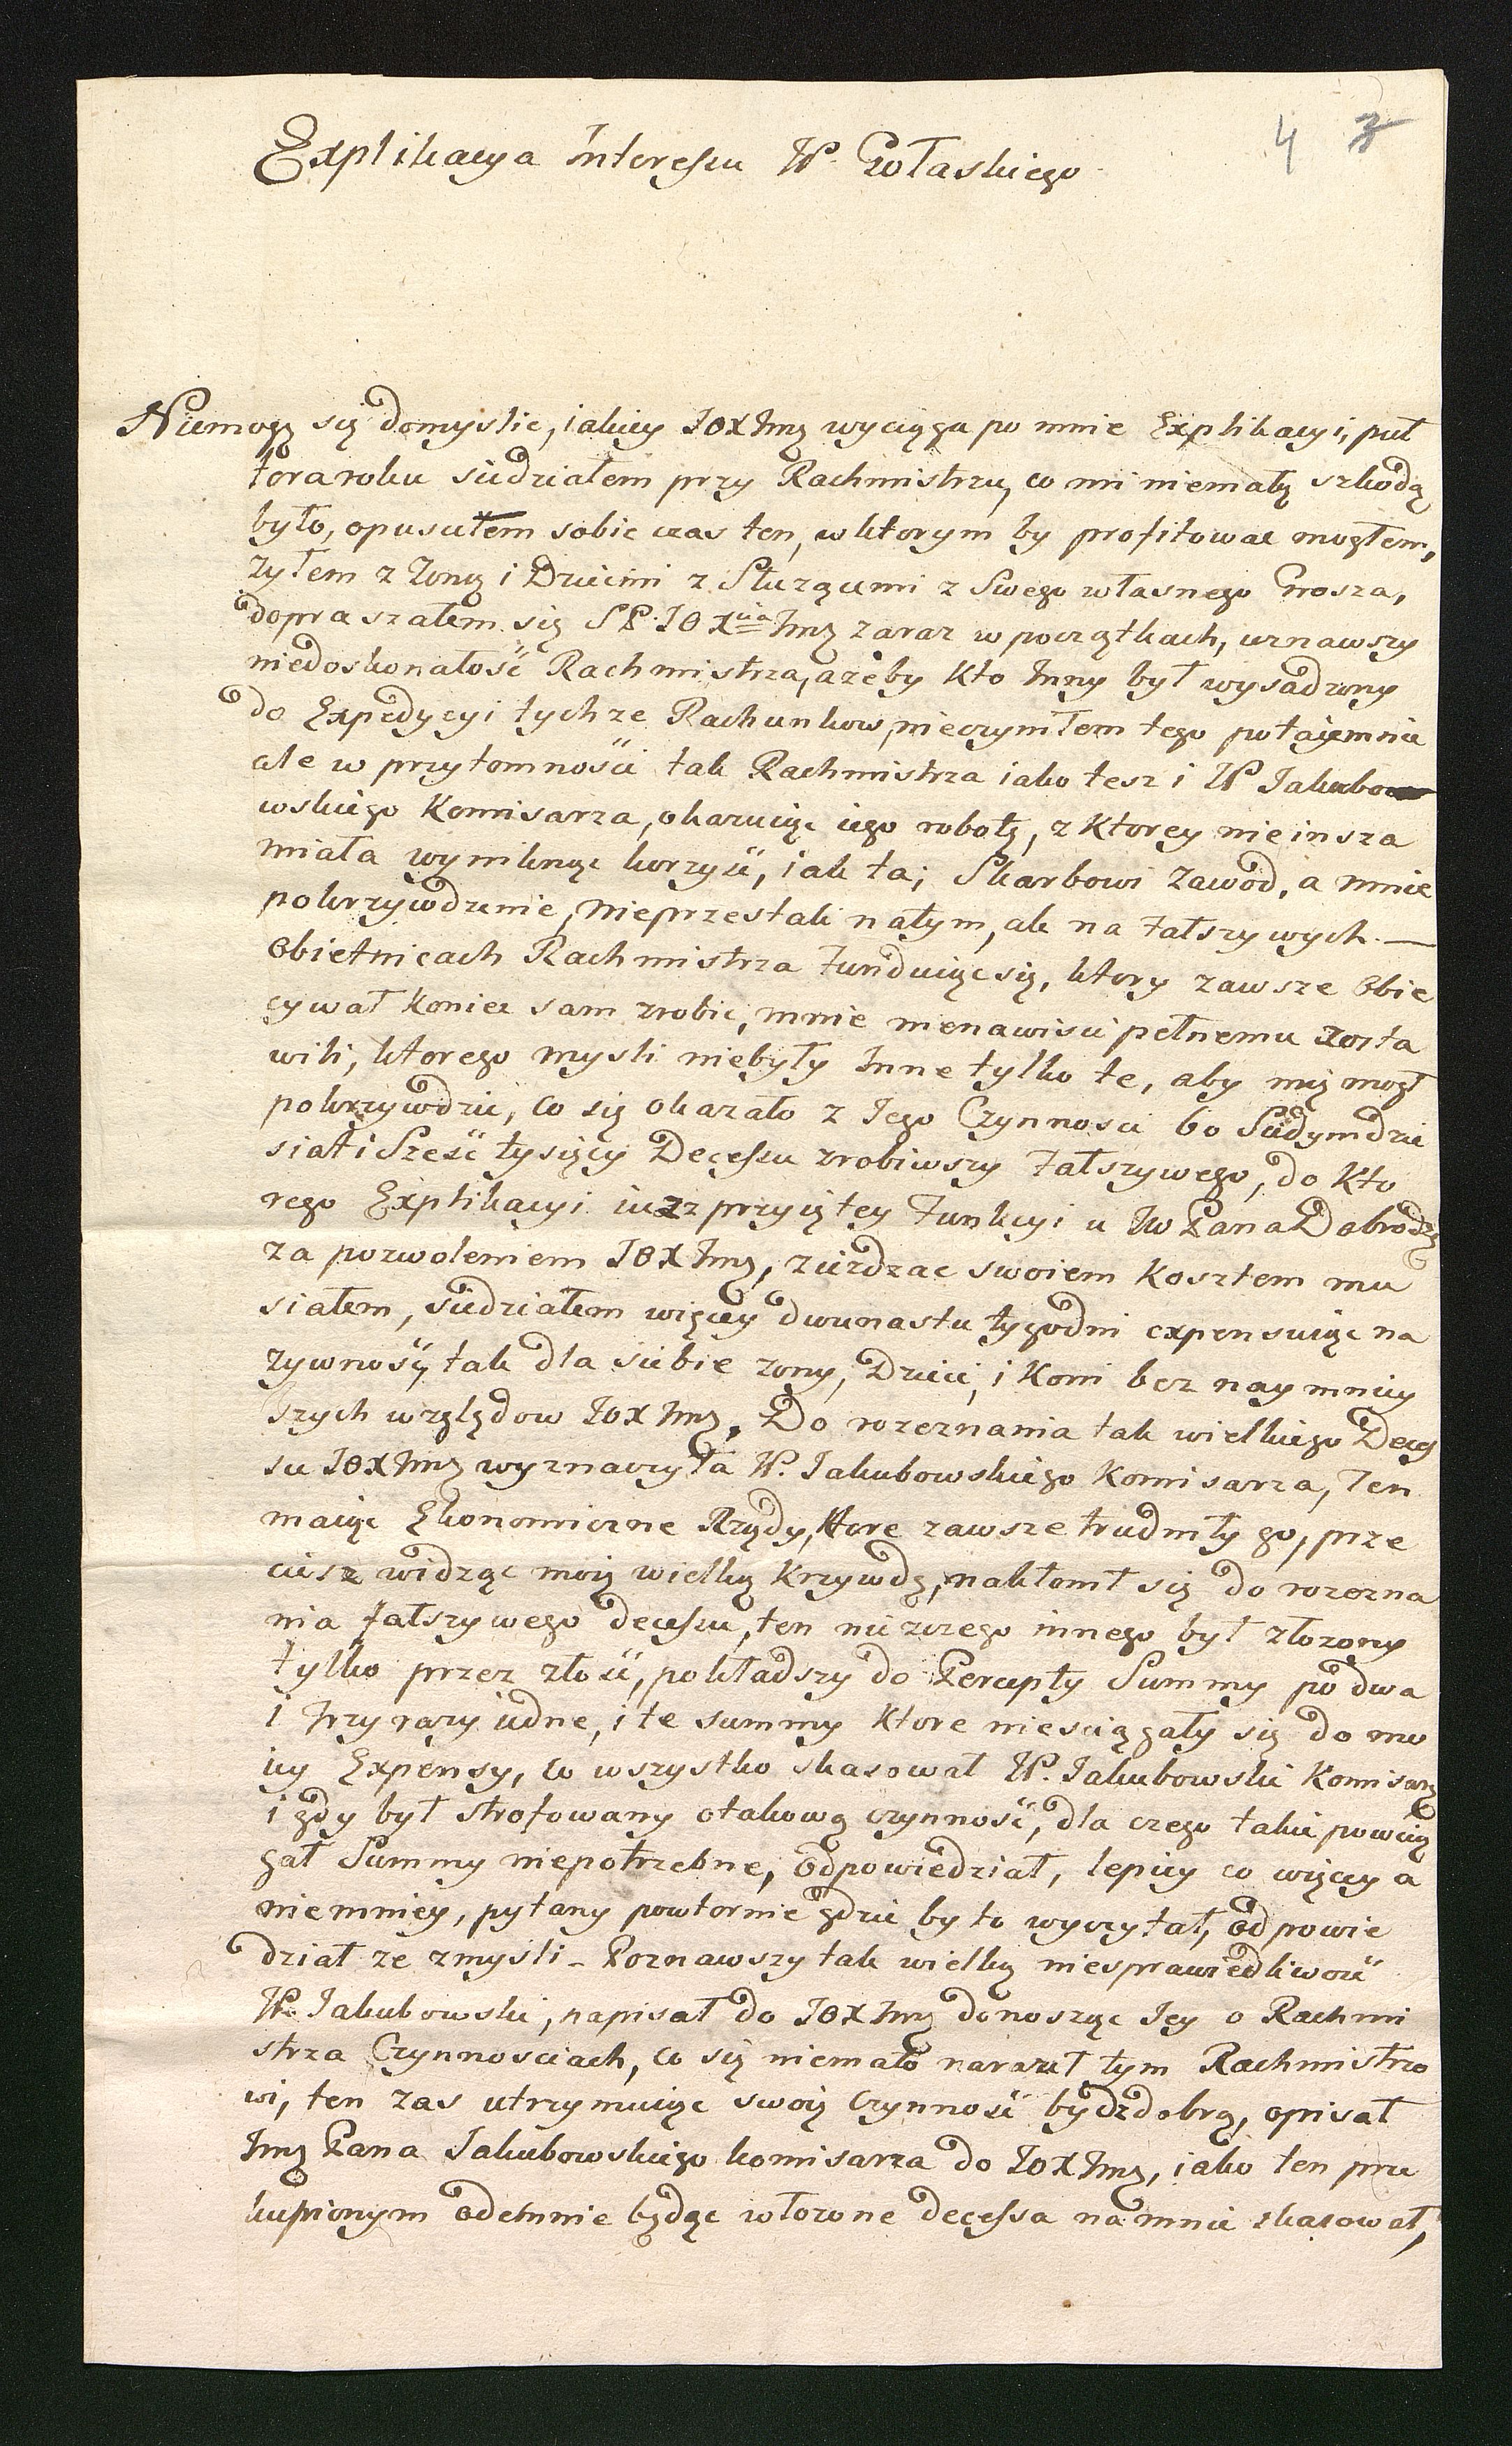 4 3
Explikacya Interessu W. Gołaskiego
Niemogę się domyslic, iakiey JOXImę wyciąga po mnie Explikacyi, puł
tora roku siedziałem przy Rachmistrzu, co mi niemałą szkodą
było, opusciłem sobie czas ten, w ktorym by profitowac mogłem,
zyłem z Zoną i Dziecmi z Sługami z Swego własnego Grosza,
dopraszałem się S P. JOXcia Imę zaraz w początkach, uznawszy
niedoskonałość Rachmistrza, azeby kto Inny był wysadzony
do Expedycyi tychze Rachunkow, nieczyniłem tego potaiemnie
ale w przytomności tak Rachmistrza iako tesz i W Jakubo
wskiego Komisarza, okazuiąc iego robotę, z Ktorey nie insza
miała wyniknąc korzyść, iak ta; Skarbowi Zawod, a mnie
pokrzywdzenie, nieprzestali natym, ale na fałszywych —
Obietnicach Rachmistrza funduiąc się, ktory zawsze Obie
cywał Koniec sam zrobic, mnie nienawisci pełnemu zosta
wili, ktorego mysli niebyły Inne tylko te, aby mię mogł
pokrzywdzic, co się okazało z Jego Czynnosci bo Siedymdzie
siat i Sześć tysięcy Decessu zrobiwszy fałszywego, do Kto
rego Explikacyi iuz z przyiętey funkcyi u Jw Pana Dobrodz
za pozwoleniem JOXImę, ziezdzac swoiem Kosztem mu
siałem, siedziałem więcey dwunastu tygodni expensuiąc na
zywność, tak dla siebie zony, Dzieci, i Koni bez naymniey
szych względow JOXImę. Do rozeznania tak wielkiego Deces
su JOXImę wyznaczyła W. Jakubowskiego Komisarza, Ten
maiąc Ekonomiczne Rządy, ktore zawsze trudniły go, prze
ciesz widząc moię wielką Krzywdę, nakłonił się do rozezna
nia fałszywego decessu, ten nieczego innego był złozony
tylko przez złość, pokładszy do Percepty Summy po dwa
i trzy razy iedne, i te summy Ktore niesciągały się do mo
iey Expensy, co wszystko skasował W. Jakubowski Komisarz
i gdy był strofowany otakową czynność, dla czego takie powcią
gał Summy niepotrzebne, odpowiedział, lepiey co więcey a
niemniey, pytany powtornie gdzie by to wyczytał, odpowie
dział ze zmysli - Poznawszy tak wielką niesprawiedliwość
W. Jakubowski, napisał do JOXImę donosząc Jey o Rachmi
strza Czynnosciach, co się niemało naraził tym Rachmistrzo
wi, ten zas utrzymuiąc swoię Czynność bydz dobrą, opisał
Imę Pana Jakubowskiego komisarza do JOXImę, iako ten prze
kupionym odemnie będąc włozone decessa na mnie skasował,